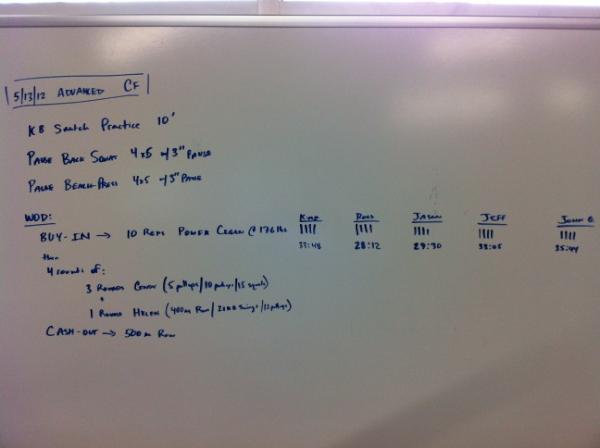 5/13/12 ADVANCED CF
KB Snatch Practice 10'
PAUSE BACK SQUAT 4x5 w/3" PAUSE
PAUSE BENCH-PRESS 4x5 w/3" PAUSE
WOD:
BUY-IN → 10 REPS POWER CLEAN @ 176 lbs
then
4 rounds of:
3 ROUNDS CINDY (5 pullups/10 pushups/15 squats)
+
1 ROUND HELEN (400m Run/21 KB Swings/12 pullups)
CASH-OUT → 500m Row
IIII
33:48
ROSS
IIII
28:12
JASON
IIII
29:30
JEFF
IIII
33:05
JOHN
IIII
35:44